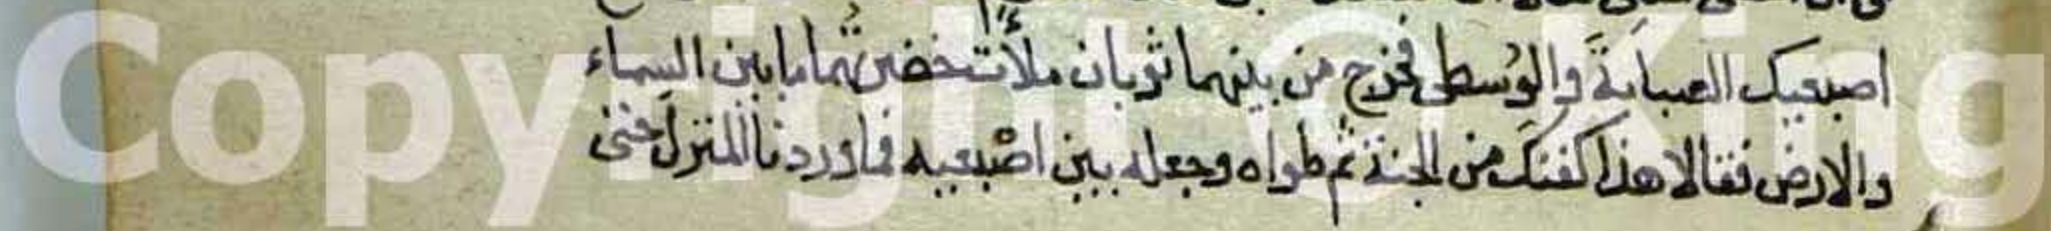 اصبعيك السبابة والوسطى فخرج من بينهما ثوبان ملأت خضرتهما ما بين السماء
والارض فقالا هذا كفنك من الجنة ثم طواه وجعله بين اصبعيه فما وردنا المنزل حتى
Copyright © King